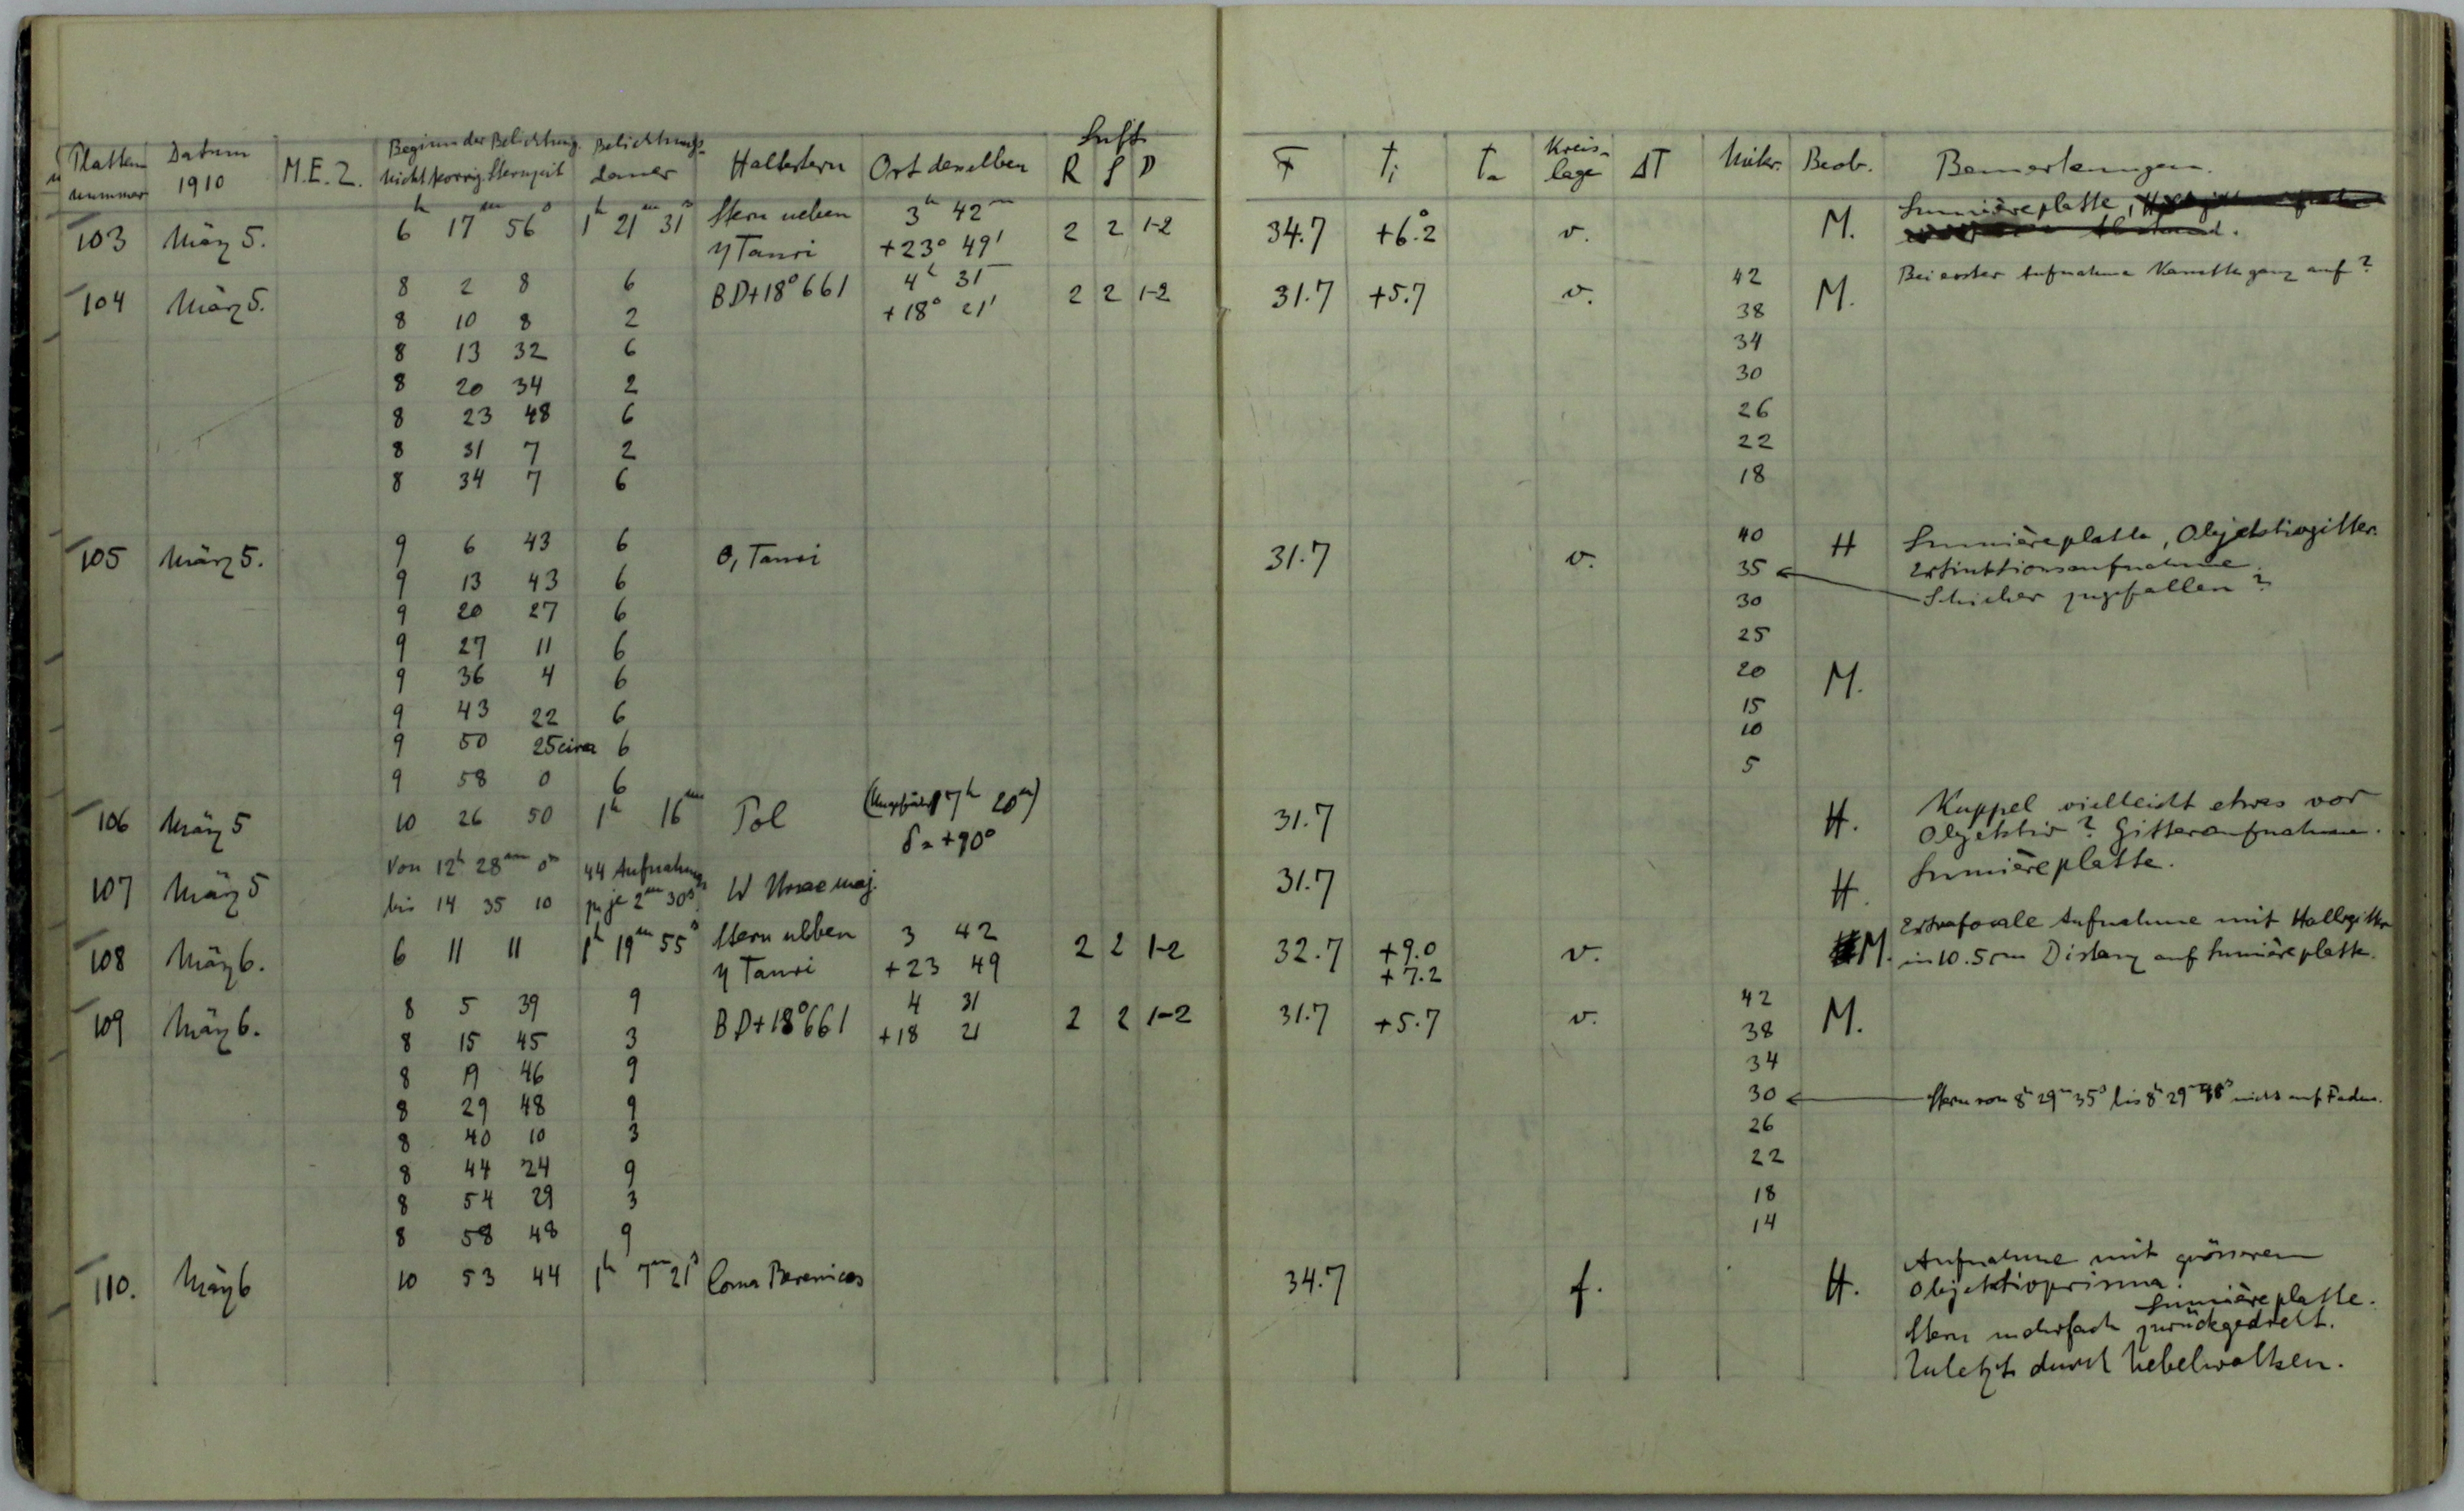 Platten nummer Datum 1910 M.E.Z. Beginn der Belichtung nicht korrig. Sternzeit Belichtungs- dauer Haltestern Ort desselben Luft R S D F Ti Ta Kreis- lage ΔT Mikr. Beob. Bemerkungen.
103 März 5. 6h 17m 56s 1h 21m 31s Stern neben 3h 42m 2 2 1-2 34.7 +6.°2 v. M. Lumièreplatte,
η Tauri +23° 49'
104 März 5. 8 2 8 6 BD+18°661 4h 31m 2 2 1-2 31.7 +5.7 v. 42 M. Bei erster Aufnahme Kassette ganz auf?
8 10 8 2 +18° 21' 38
8 13 32 6 34
8 20 34 2 30
8 23 48 6 26
8 31 7 2 22
8 34 7 6 18
105 März 5. 9 6 43 6 θ, Tauri 31.7 v. 40 H Lumièreplatte, Objektivgitter.
9 13 43 6 35 Extinktionsaufnahme.
9 20 27 6 30 Schieber zugefallen?
9 27 11 6 25
9 36 4 6 20 M.
9 43 22 6 15
9 50 25 circa 6 10
9 58 0 6 5
106 März 5 10 26 50 1h 16m Pol (Ungefähr 7h 20m) 31.7 H. Kuppel vielleicht etwas vor
δ = +90° Objektiv? Gitteraufnahme.
107 März 5 Von 12h 28m 0s 44 Aufnahmen W Ursae maj. 31.7 H. Lumièreplatte.
bis 14 35 10 zu je 2m 30s
108 März 6. 6 11 11 1h 19m 55s Stern neben 3 42 2 2 1-2 32.7 +9.0 v. M. Extrafocale Aufnahme mit Hallegitter
η Tauri +23 49 +7.2 in 10.5 cm Distanz auf Lumièreplatte.
109 März 6. 8 5 39 9 BD+18°661 4 31 2 2 1-2 31.7 +5.7 v. 42 M.
8 15 45 3 +18 21 38
8 19 46 9 34
8 29 48 9 30 Stern von 8h 29m 35s bis 8h 29m 48s nicht auf Faden.
8 40 10 3 26
8 44 24 9 22
8 54 29 3 18
8 58 48 9 14
110. März 6 10 53 44 1h 7m 21s Coma Berenices 34.7 f. H. Aufnahme mit grösserem
Objektivprisma.
Lumièreplatte.
Stern mehrfach zurückgedreht.
Zuletzt durch Nebelwolken.